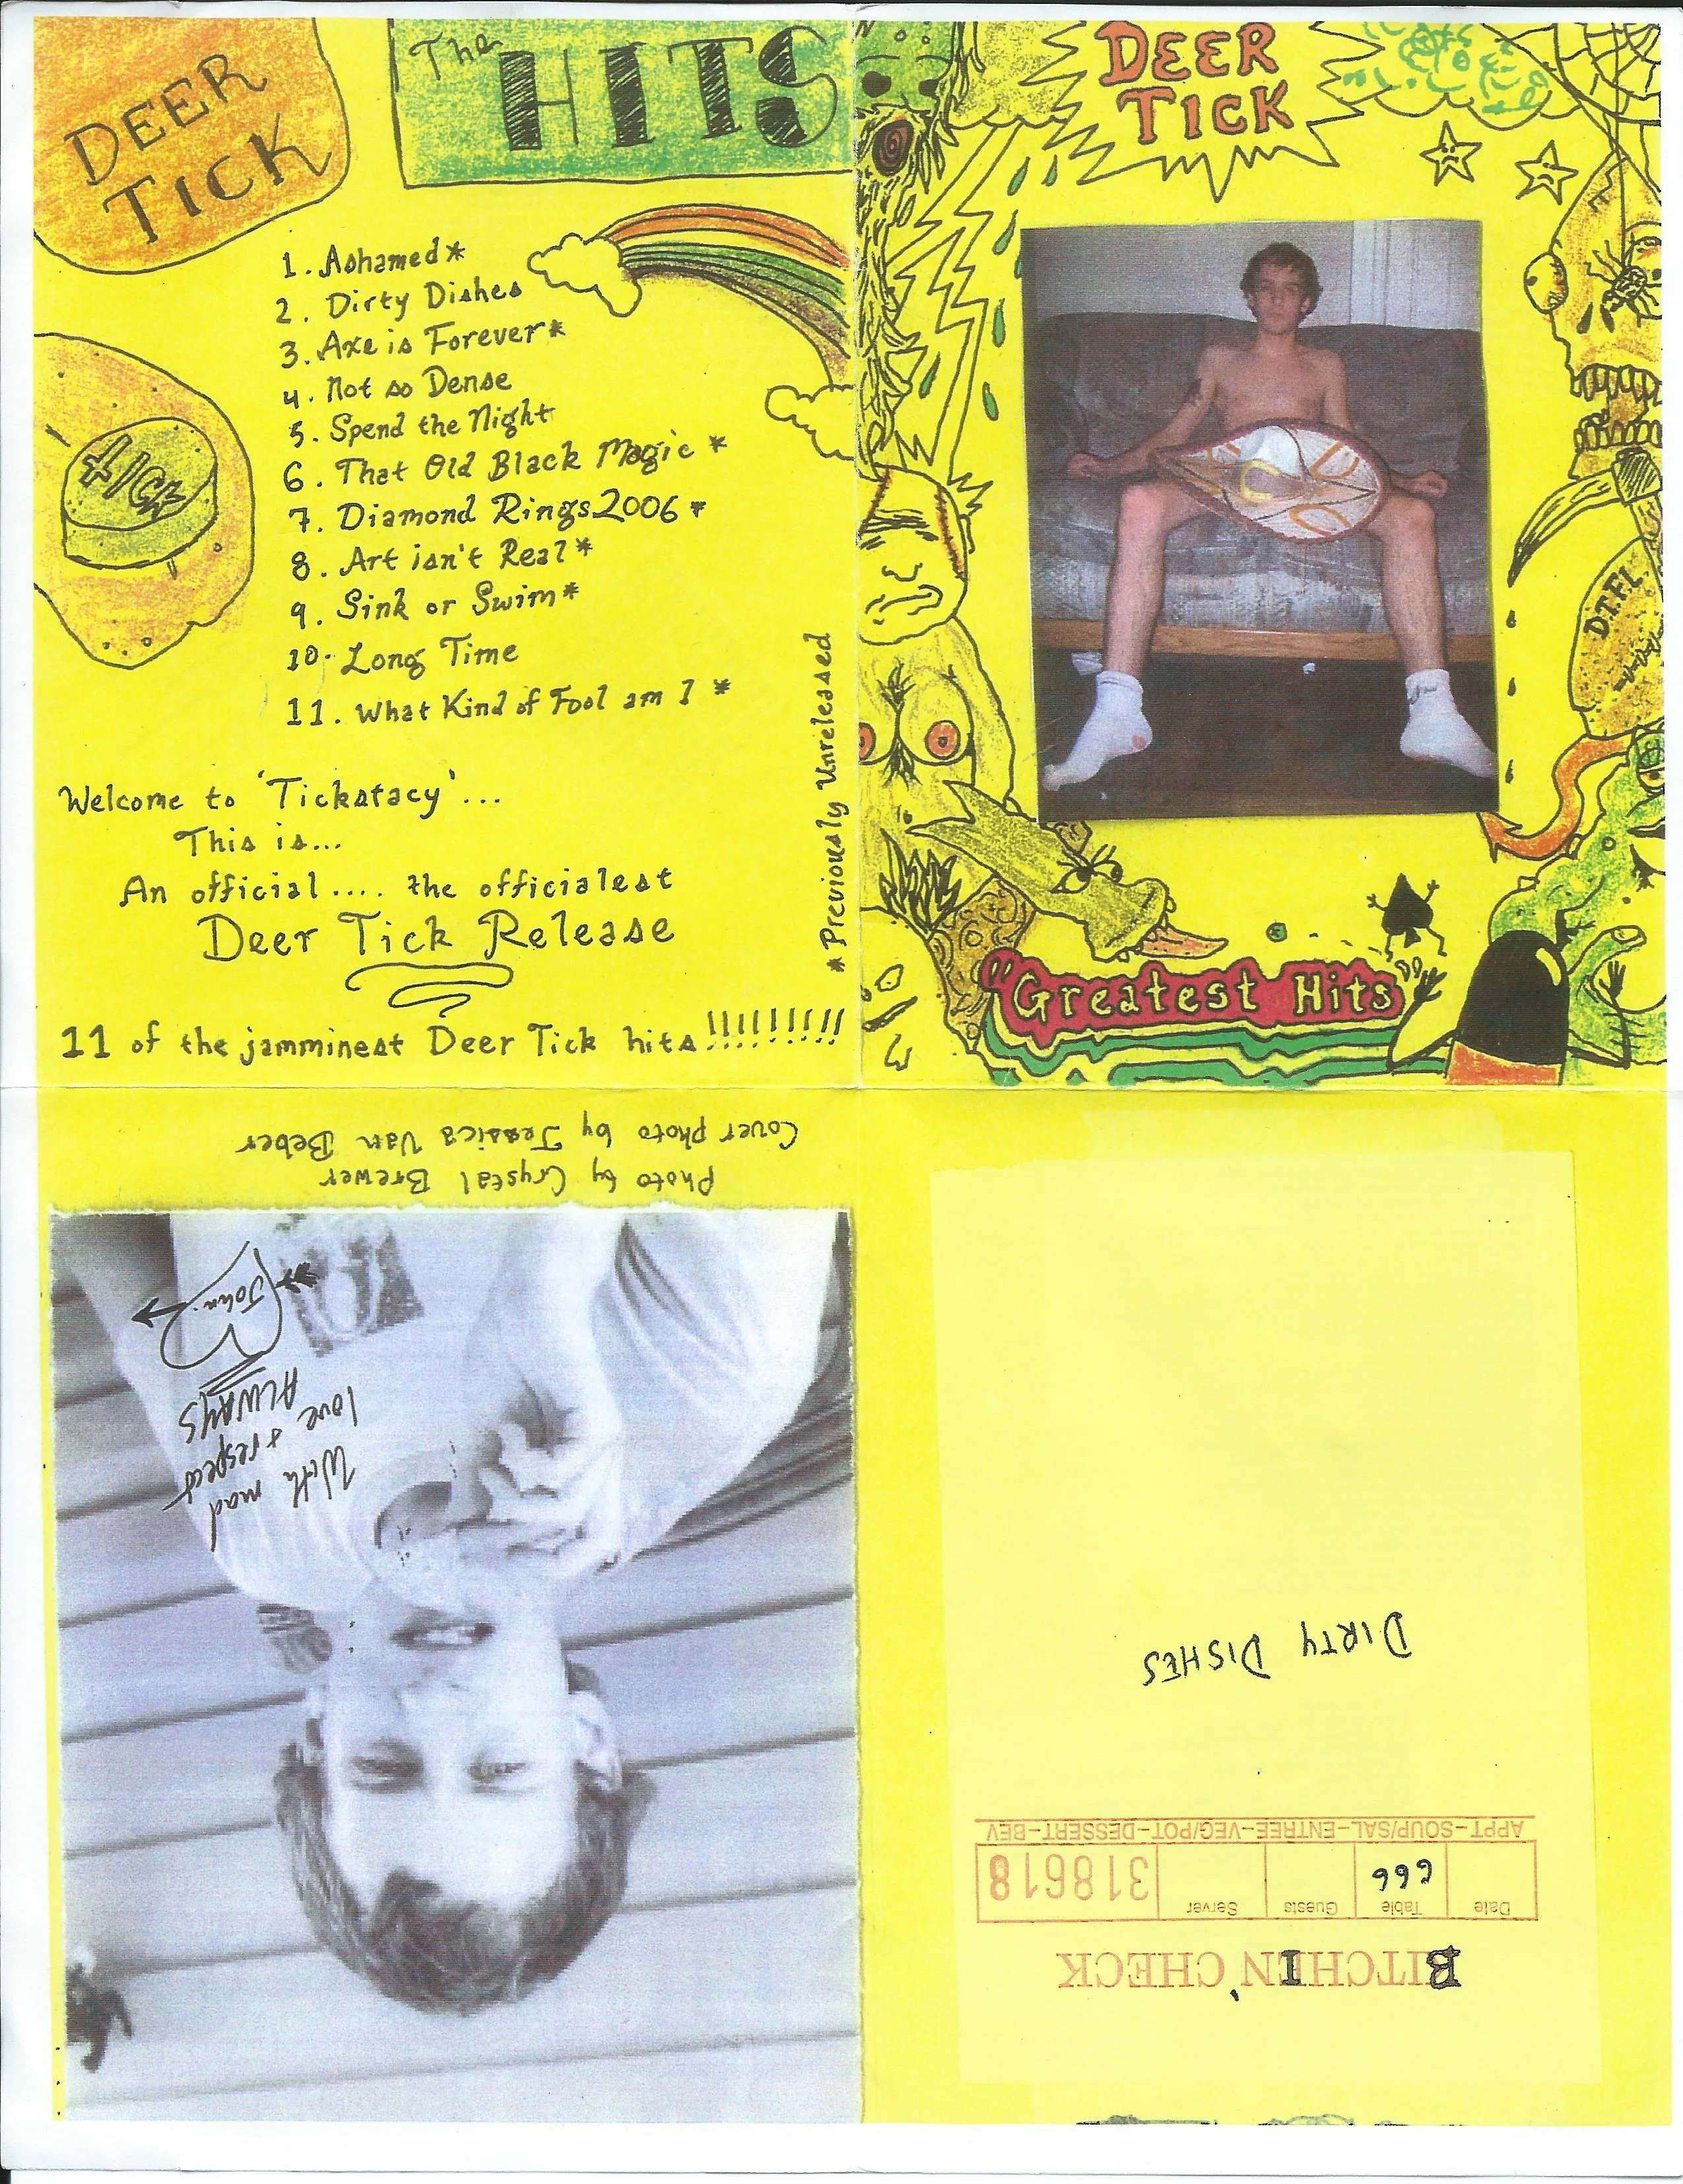 DEER
TICK
The HITS
1. Ashamed*
2. Dirty Dishes
3. Axe is Forever*
4. Not so Dense
5. Spend the Night
6. That Old Black Magic *
7. Diamond Rings 2006 *
8. Art isn't Real *
9. Sink or Swim*
10. Long Time
11. What Kind of Fool am I *
* Previously Unreleased
TICK
Welcome to 'Tickstacy'...
This is...
An official.... the officialest
Deer Tick Release
11 of the jamminest Deer Tick hits!!!!!!!!!
DEER
TICK
D.T.F.L.
"Greatest Hits"
Cover photo by Jessica Van Beber
Photo by Crystal Brewer
With mad
love & respect
ALWAYS
John.
BITCHIN' CHECK
Date Table Guests Server
666 318618
APPT-SOUP/SAL-ENTREE-VEG/POT-DESSERT-BEV
DIRTY DISHES